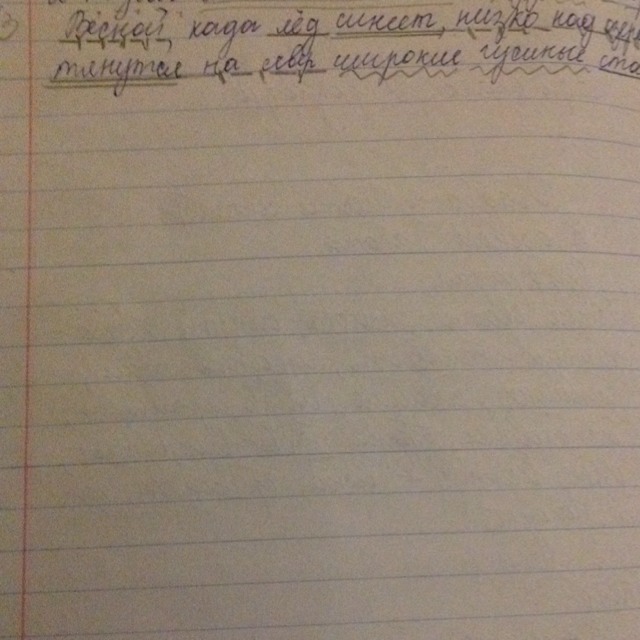 3) Весной, када лёд синеет, низко над
тянутся на север широкие гусиные